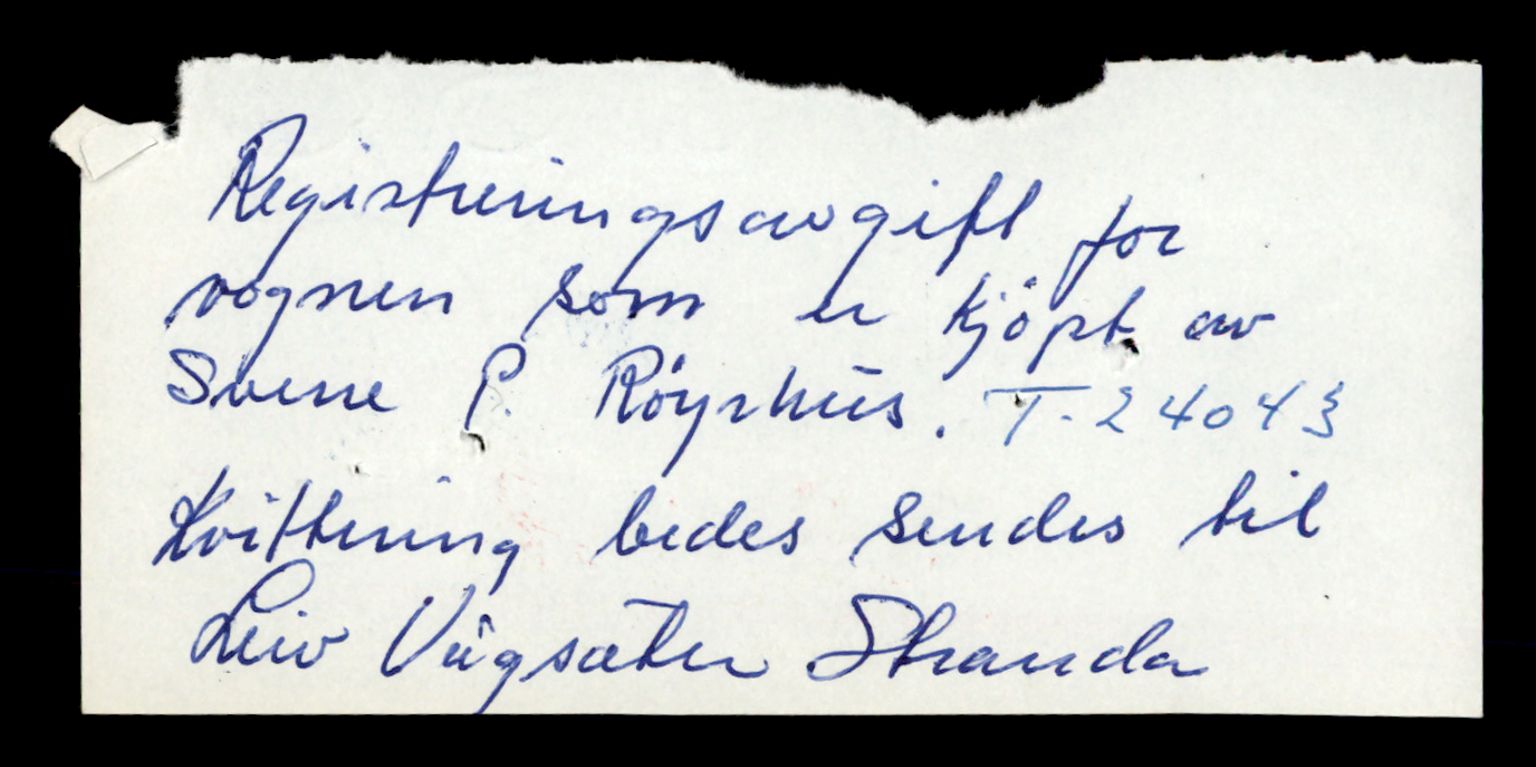 Registreringsavgift for
vognen som er kjöpt av
Sverre P. Röyrhus. T-24043
Kvittering bedes sendes til
Leiv Vågsæter Stranda